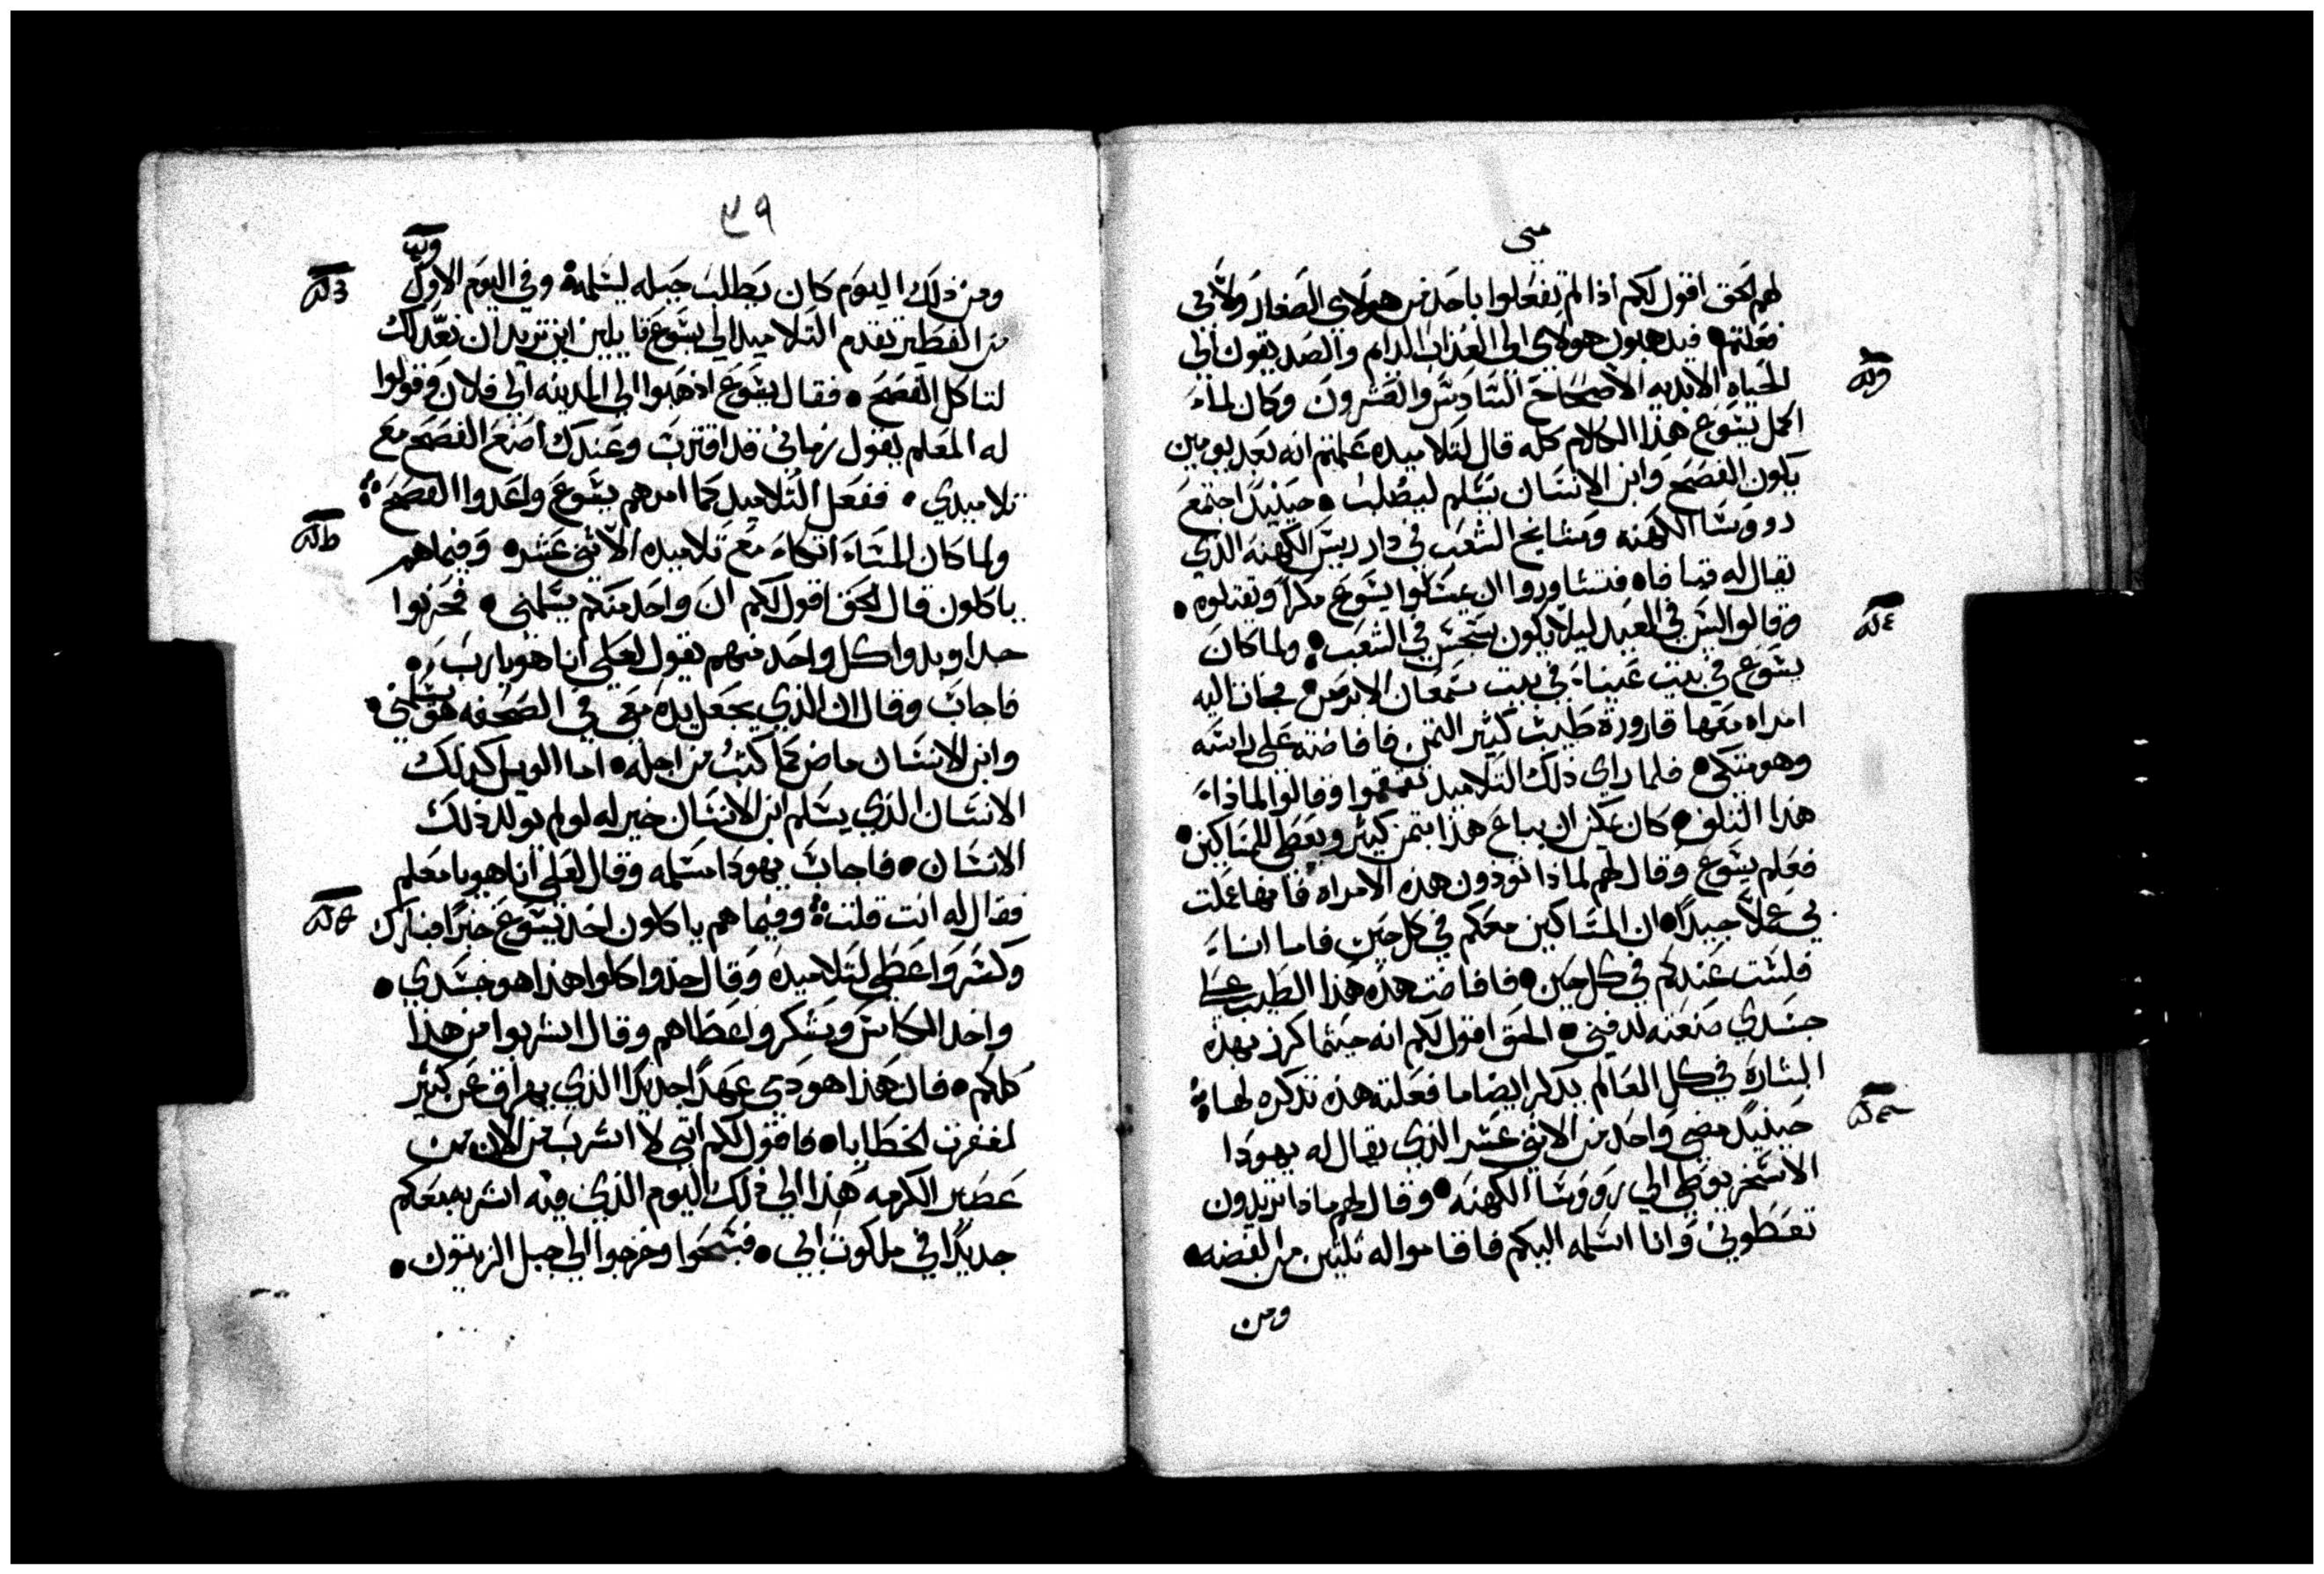 متى
لهم الحق اقول لكم اذا لم تفعلوا باحد من هولاي الصغار ولا بي
فعلتم فيدهبون هولاي الي العذاب الدايم والصديقون الي
الحياه الابديه الاصحاح السادس والعشرون وكان لماء
اكمل يسوع هذا الكلام كله قال لتلاميده علمتم انه بعد يومين
يكون الفصح وابن الانسان يسلم ليصلب حينيدا اجتمع
رووسا الكهنه ومشايخ الشعب في دار ريس الكهنه الذي
يقال له قيافاه فتشاوروا ان يمسكوا يسوع مكرا ويقتلوه
وقالوا ليس في العيد ليلا يكون سجس في الشعب ولما كان
يسوع في بيت عنياء في بيت سمعان الابرص فجات اليه
امراه معها قارورة طيب كثير الثمن فافاضته علي راسه
وهو متكي فلما راي ذلك التلاميد تقمقموا وقالوا لماذاء
هذا التلف كان يمكن ان يباع هذا بثمن كثير ويعطي للمساكين
فعلم يسوع وقال لهم لماذا تودون هذه الامراه فانها عملت
بي عملا جيدا ان المساكين معكم في كل حين فاما اناء
فلست عندكم في كل حين فافاضت هذه هذا الطيب علي
جسدي صنعته لدفني الحق اقول لكم انه حيثما كرز بهذه
البشارة في كل العالم يدكر ايضا ما فعلته هذه تدكره لها
حينيد مضي واحد من الاثني عشر الذي يقال له يهودا
الاسخريوطي الي رووسا الكهنه وقال لهم ماذا تريدون
تعطوني وانا اسلمه اليكم فاقاموا له تلتين من الفضه
ومن
٣٩
ومن ذلك اليوم كان يطلب حيله ليسلمه وفي اليوم الاول
من الفطير تقدم التلاميد الي يسوع قايلين اين تريد ان نعد لك
لتاكل الفصح فقال يسوع ادهبوا الي المدينه الي فلان وقولوا
له المعلم يقول زماني قد اقترب وعندك اصنع الفصح مع
تلاميدي ففعل التلاميد كما امرهم يسوع واعدوا الفصح
ولما كان المساء اتكاء مع تلاميده الاثني عشر وفيما هم
ياكلون قال الحق اقول لكم ان واحد منكم يسلمني فحزنوا
جدا وبدوا كل واحد منهم يقول لعلي انا هو يارب
فاجاب وقال ان الذي يجعل يده معي في الصحفه هو يسلمني
وابن الانسان ماض كما كتب من اجله اما الويل كدلك
الانسان الذي يسلم ابن الانسان خير له لو لم يولد ذلك
الانسان فاجاب يهودا مسلمه وقال لعلي انا هو يا معلم
فقال له انت قلت وفيما هم ياكلون اخذ يسوع خبزا فبارك
وكسر واعطي لتلاميده وقال خذوا كلوا هذا هو جسدي
واخد الكاس وشكر واعطاهم وقال اشربوا من هذا
كلكم فان هذا هو دمي عهدا جديدا الذي يهراق عن كثير
لمغفرت الخطايا فاقول لكم اني لا اشرب من الان من
عصير الكرمه هذا الي ذلك اليوم الذي فيه اشربه معكم
جديدا في ملكوت ابي فسبحوا وخرجوا الي جبل الزيتون